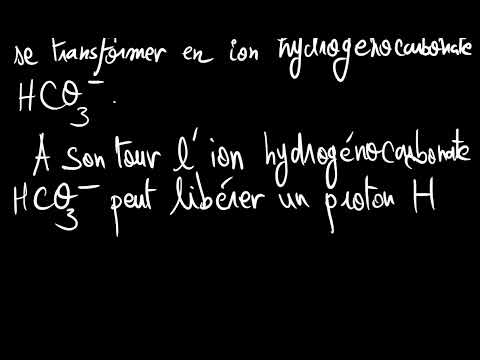 se transformer en ion hydrogénocarbonate
HCO₃⁻.
A son tour l'ion hydrogénocarbonate
HCO₃⁻ peut libérer un proton H